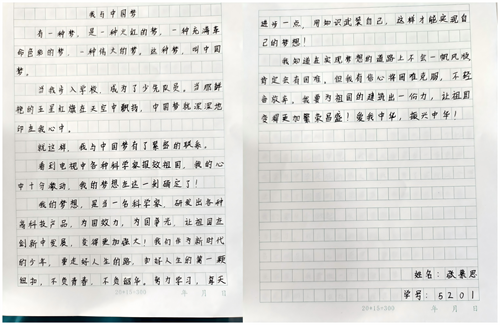 我与中国梦
有一种梦，是一种火红的梦，一种充满革
命色彩的梦，一种伟大的梦，这种，叫中国
梦。
当我步入学校，成为了少先队员。当那鲜
艳的五星红旗在天空中飘扬，中国梦就深深地
印在我心中。
就这样，我与中国梦有了紧密的联系。
看到电视中各种科学家报效祖国，我的心
中十分激动，我的梦想在这一刻确定了！
我的梦想，是当一名科学家，研发出各种
高科技产品，为国效力，为国争光，让祖国在
创新中发展，变得更加强大！我们作为新时代
的少年，要走好人生的路，扣好人生的第一颗
纽扣，不负青春，不负韶华。努力学习，每天
20×15=300 年 月 日
进步一点，用知识武装自己，这样才能实现自
己的梦想！
我知道在实现梦想的道路上不会一帆风顺
肯定会有困难，但我有信心将困难克服，不轻
言放弃。我要为祖国的建筑出一份力，让祖国
变得更加繁荣昌盛！爱我中华，振兴中华！
姓名：思
学号：5201
20×15=300 年 月 日